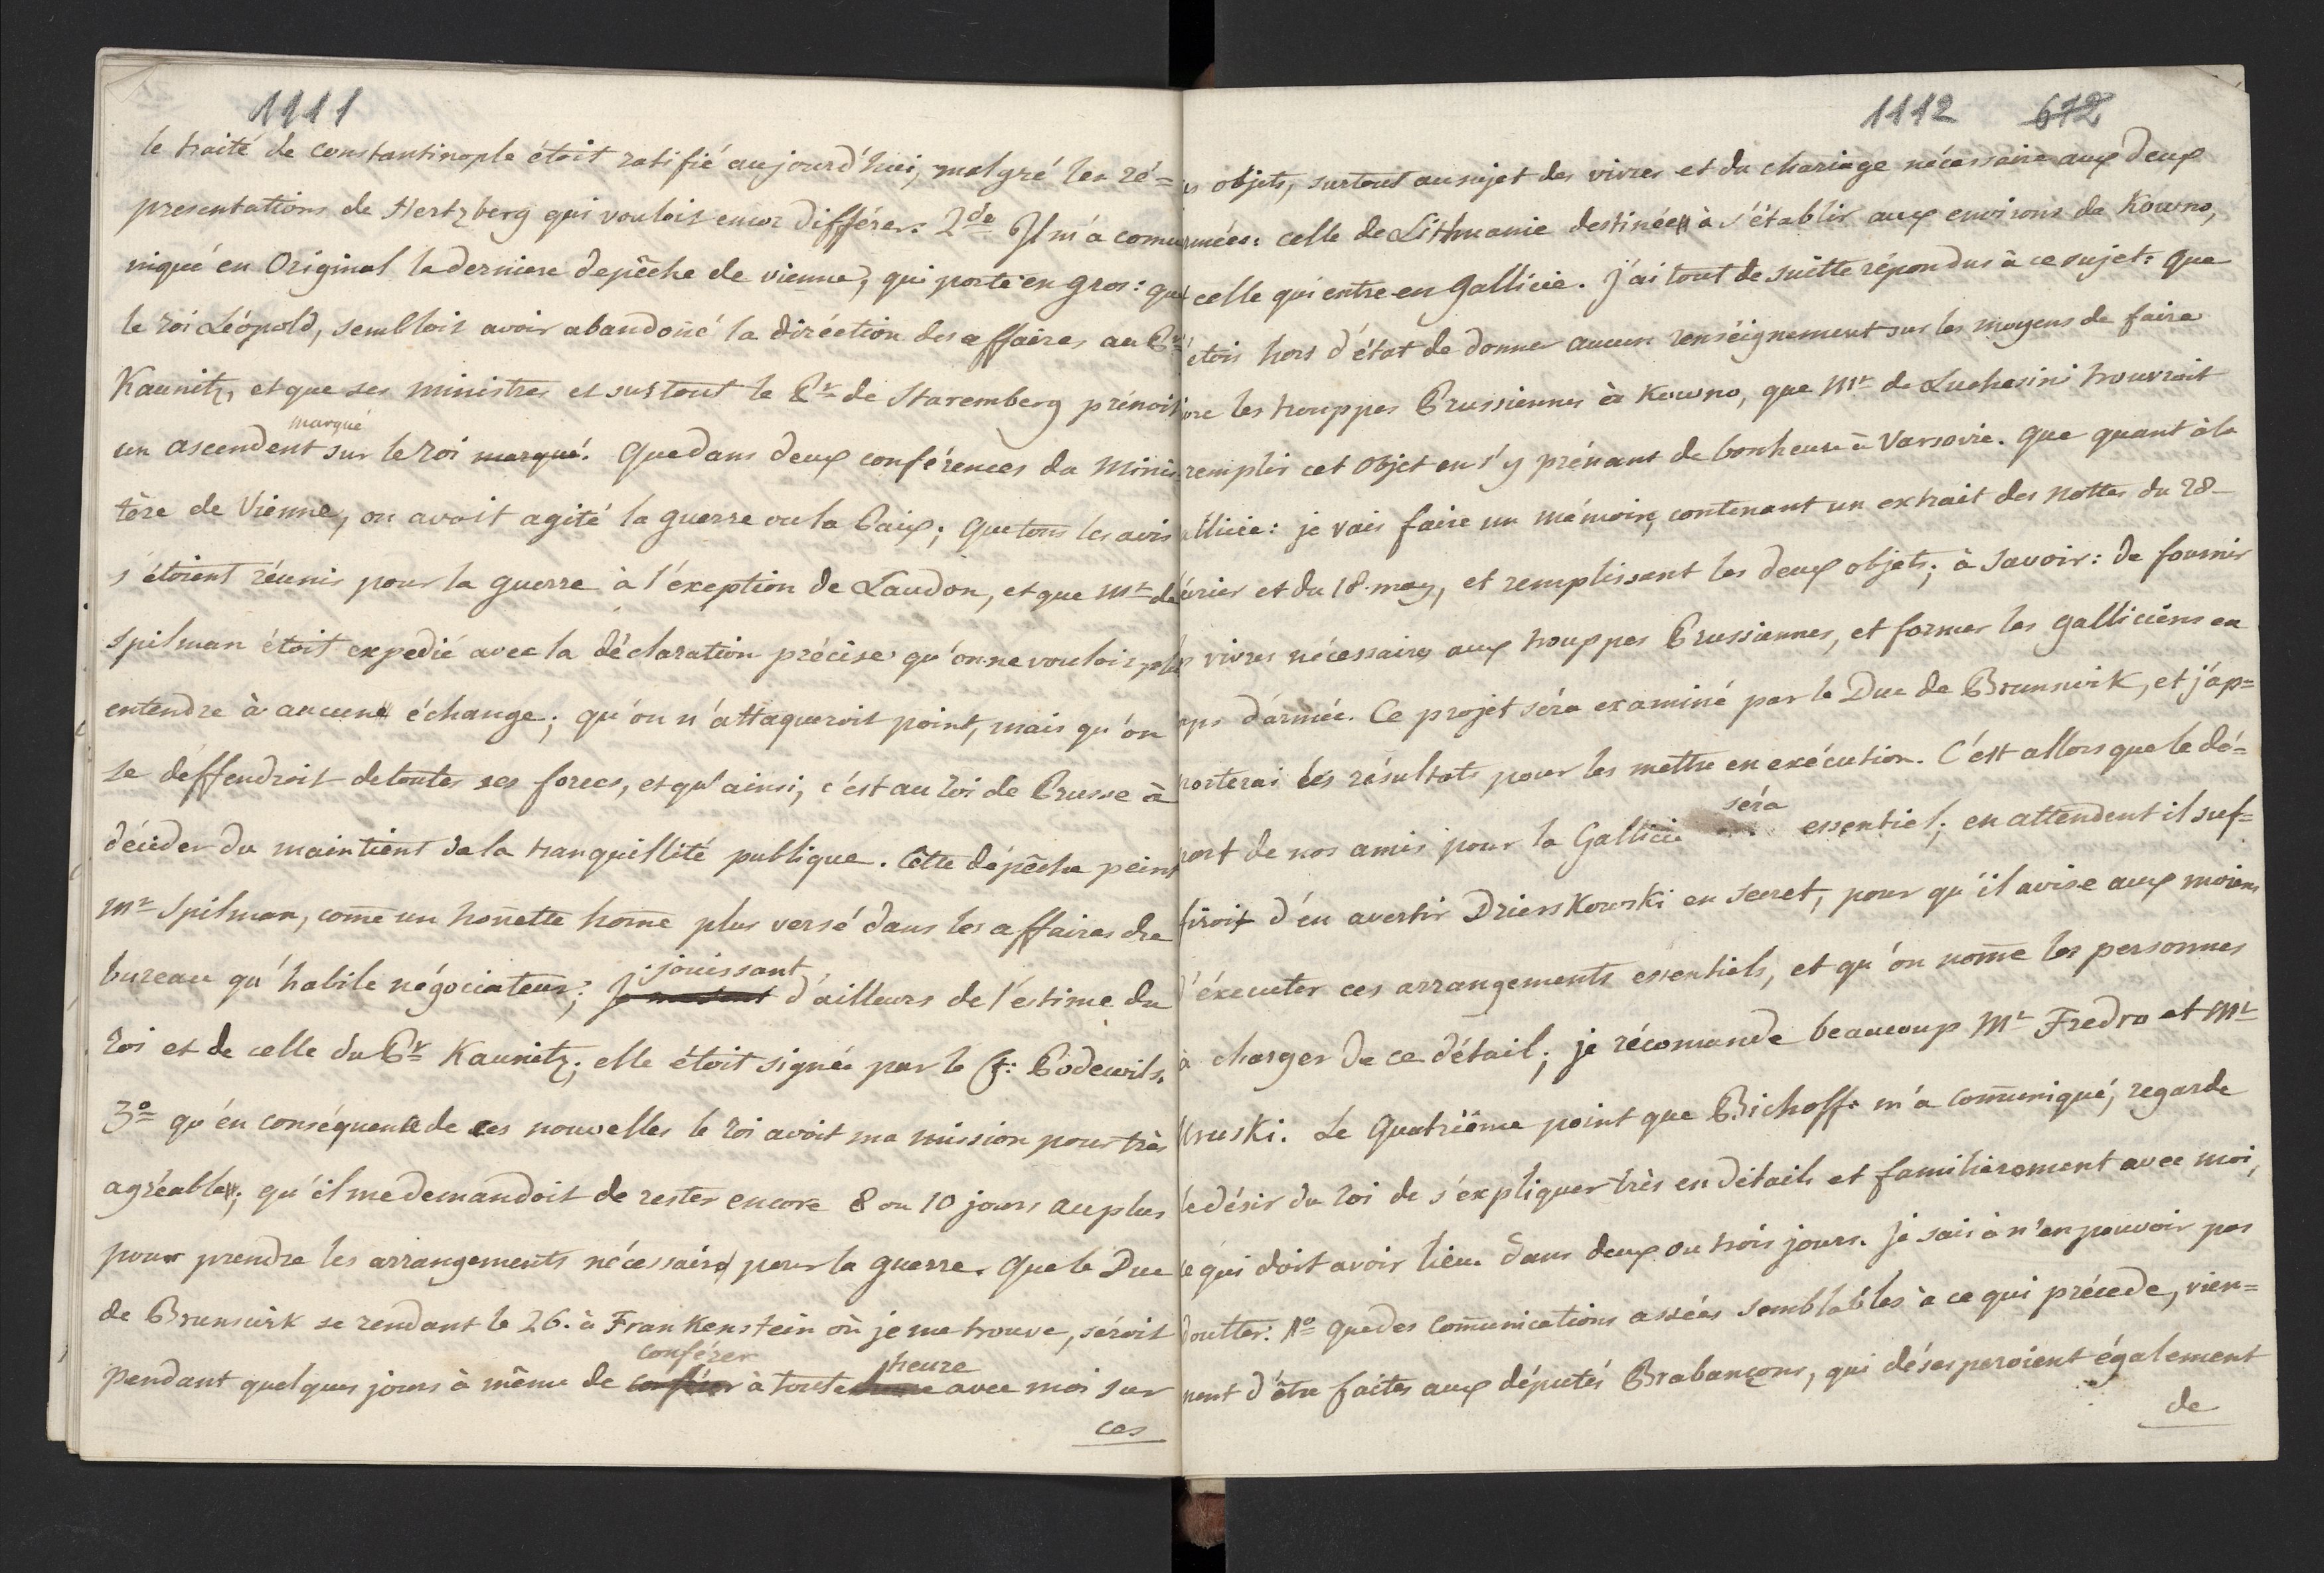 1111
le traité de constantinople étoit ratifié aujourd'hui, malgré les ré=
presentations de Hertzberg qui vouloit encor différer. 2do Il m'a comu
niqué en Original la derniere depêche de vienne, qui porte en gros: que
le roi Léopold, sembloit avoir abandoñé la diréction des affaires au Pce
Kaunitz, et que ses ministres et surtout le Pr de Staremberg prénoit
marqué
un ascendent sur le roi marqué. Que dans deux conférences du Minis
tère de Vienne, on avoit agité la guerre ou la Paix; que tous les avis
s'étoient réunis pour la guerre à l'éxeption de Laudon, et que Mr de
Spilman étoit expedié avec la déclaration précise qu'on ne vouloit plus
entendre à aucune échange; qu'on n'attaqueroit point, mais qu'on
se déffendroit de toutes ses forces, et qu'ainsi, c'ést au roi de Prusse à
décider du maintient de la tranquillité publique. Cette dépêche peint
Mr Spilman, come un hoñette hom̄e plus versé dans les affaires de
jouissant
bureau qu'habile négociateur; d'ailleurs de l'éstime du
roi et de celle du Pr Kaunitz; elle étoit signée par le C: Podewils.
3o qu'én conséquence de ces nouvelles le roi avoit ma mission pour très
agréable; qu'il me demandoit de rester encore 8 ou 10 jours au plus
pour prendre les arrangements nécessaires pour la guerre. Que le Duc
de Brunswik se rendant le 26. à Frankenstein où je me trouve, séroit
conférer heure
pendant quelques jours à même de à toute avec moi sur
ces
1112 672
es objets, surtout au sujet des vivres et du chariage nécessaire aux deux
rmées: celle de Lithuanie destinée à s'établir aux environs de Kowno,
celle qui entre en Gallicie. J'ai tout de suitte répondus à ce sujet: que
étois hors d'état de donner aucun renséignement sur les moyens de faire
vre les trouppes Prussiennes à Kowno, que Mr de Luchesini trouvroit
remplir cet objet en s'y prénant de bonheure à Varsovie. Que quant à la
allicie: je vais faire un mémoire, contenant un extrait des nottes du 28
évrier et du 18. may, et remplissant les deux objets; à savoir: de fournir
s vivres nécessaires aux trouppes Prussiennes, et former les galliciens en
rps d'armée. Ce projet séra examiné par le Duc de Brunswik, et j'ap=
porterai les résultats pour les mettre en exécution. C'ést allors que le dé=
séra
port de nos amis pour la Gallicie essentiel; en attendent il suf=
firoit d'én avertir Drierskowski en Secret, pour qu'il avise aux moiens
d'éxecuter ces arrangements essentiels, et qu'on nom̄e les personnes
à charger de ce détail; je récomande beaucoup Mr Fredro et Mr
Uruski. Le Quatriême point que Bichoff: m'a com̄uniqué, regarde
le désir du roi de s'expliquer très en détails et familièrement avec moi,
ce qui doit avoir lieu dans deux ou trois jours. Je sais à n'en pouvoir pas
doutter: 1o que des com̄unications assées semblables à ce qui précede, vien=
nent d'être faites aux députés Brabançons, qui désesperoient également
de